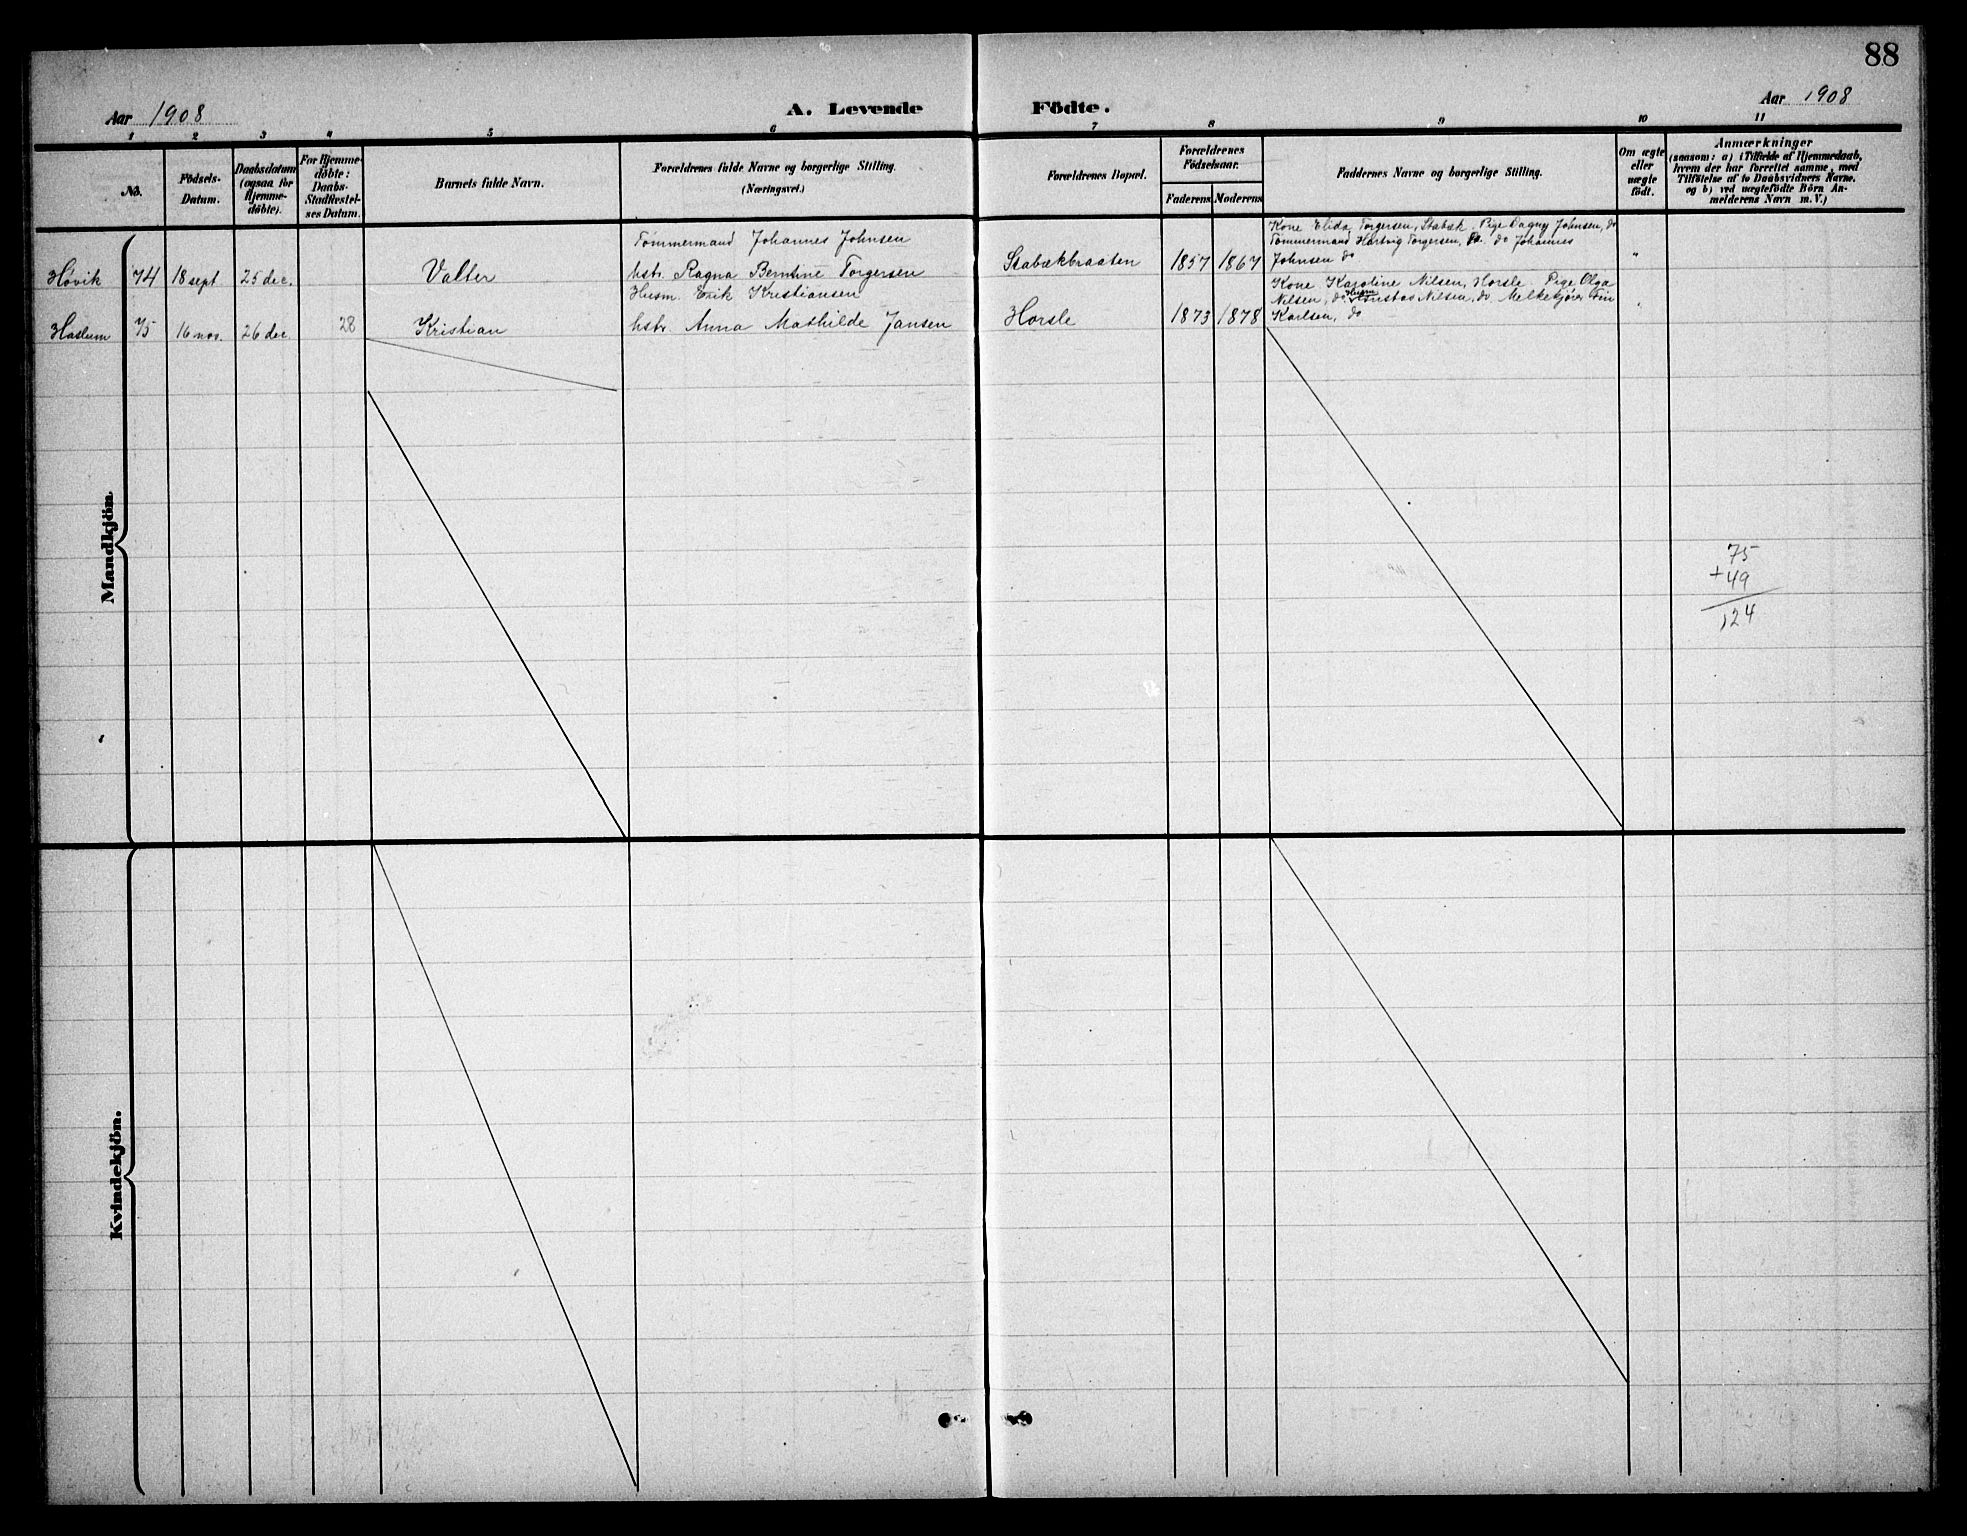 88
Aar 1908
A. Levende Födte.
Aar 1908
1 2 3 4 5 6 7 8 9 10 11
No.
Födsels-
Datum.
Daabsdatum
(ogsaa for
Hjemme-
döbte).
For Hjemme-
döbte:
Daabs-
Stadfæstel-
ses Datum.
Barnets fulde Navn.
Forældrenes fulde Navne og borgerlige Stilling.
(Næringsvei.)
Forældrenes Bopæl.
Forældrenes
Födselsaar.
Faderens Moderens
Faddernes Navne og borgerlige Stilling.
Om ægte
eller
uægte
födt.
Anmærkninger
(saasom: a) i Tilfælde af Hjemmedaab,
hvem der har forrettet samme, med
Tilföielse af to Daabsvidners Navne.
og b) ved uægtefödte Börn An-
melderens Navn m. V.)
Mandkjön.
Høvik 74 18 sept 25 dec. Valter
Tømmermand Johannes Johnsen
hstr. Ragna Berntine Torgersen
Stabækbraaten 1857 1867
Kone Elida Torgersen, Stabæk. Pige Dagny Johnsen, do
Tømmermand Hartvig Torgersen, do Johannes
Johnsen do
"
Haslum 75 16 nov. 26 dec. 28 Kristian
Husm. Erik Kristiansen
hstr. Anna Mathilde Jansen
Horsle 1873 1878
Kone Karoline Nilsen, Horsle Pige Olga
Nilsen, do Husm Nilsen, do Melkekjører
Karlsen, do
"
75
+49
124
Kvindekjön.